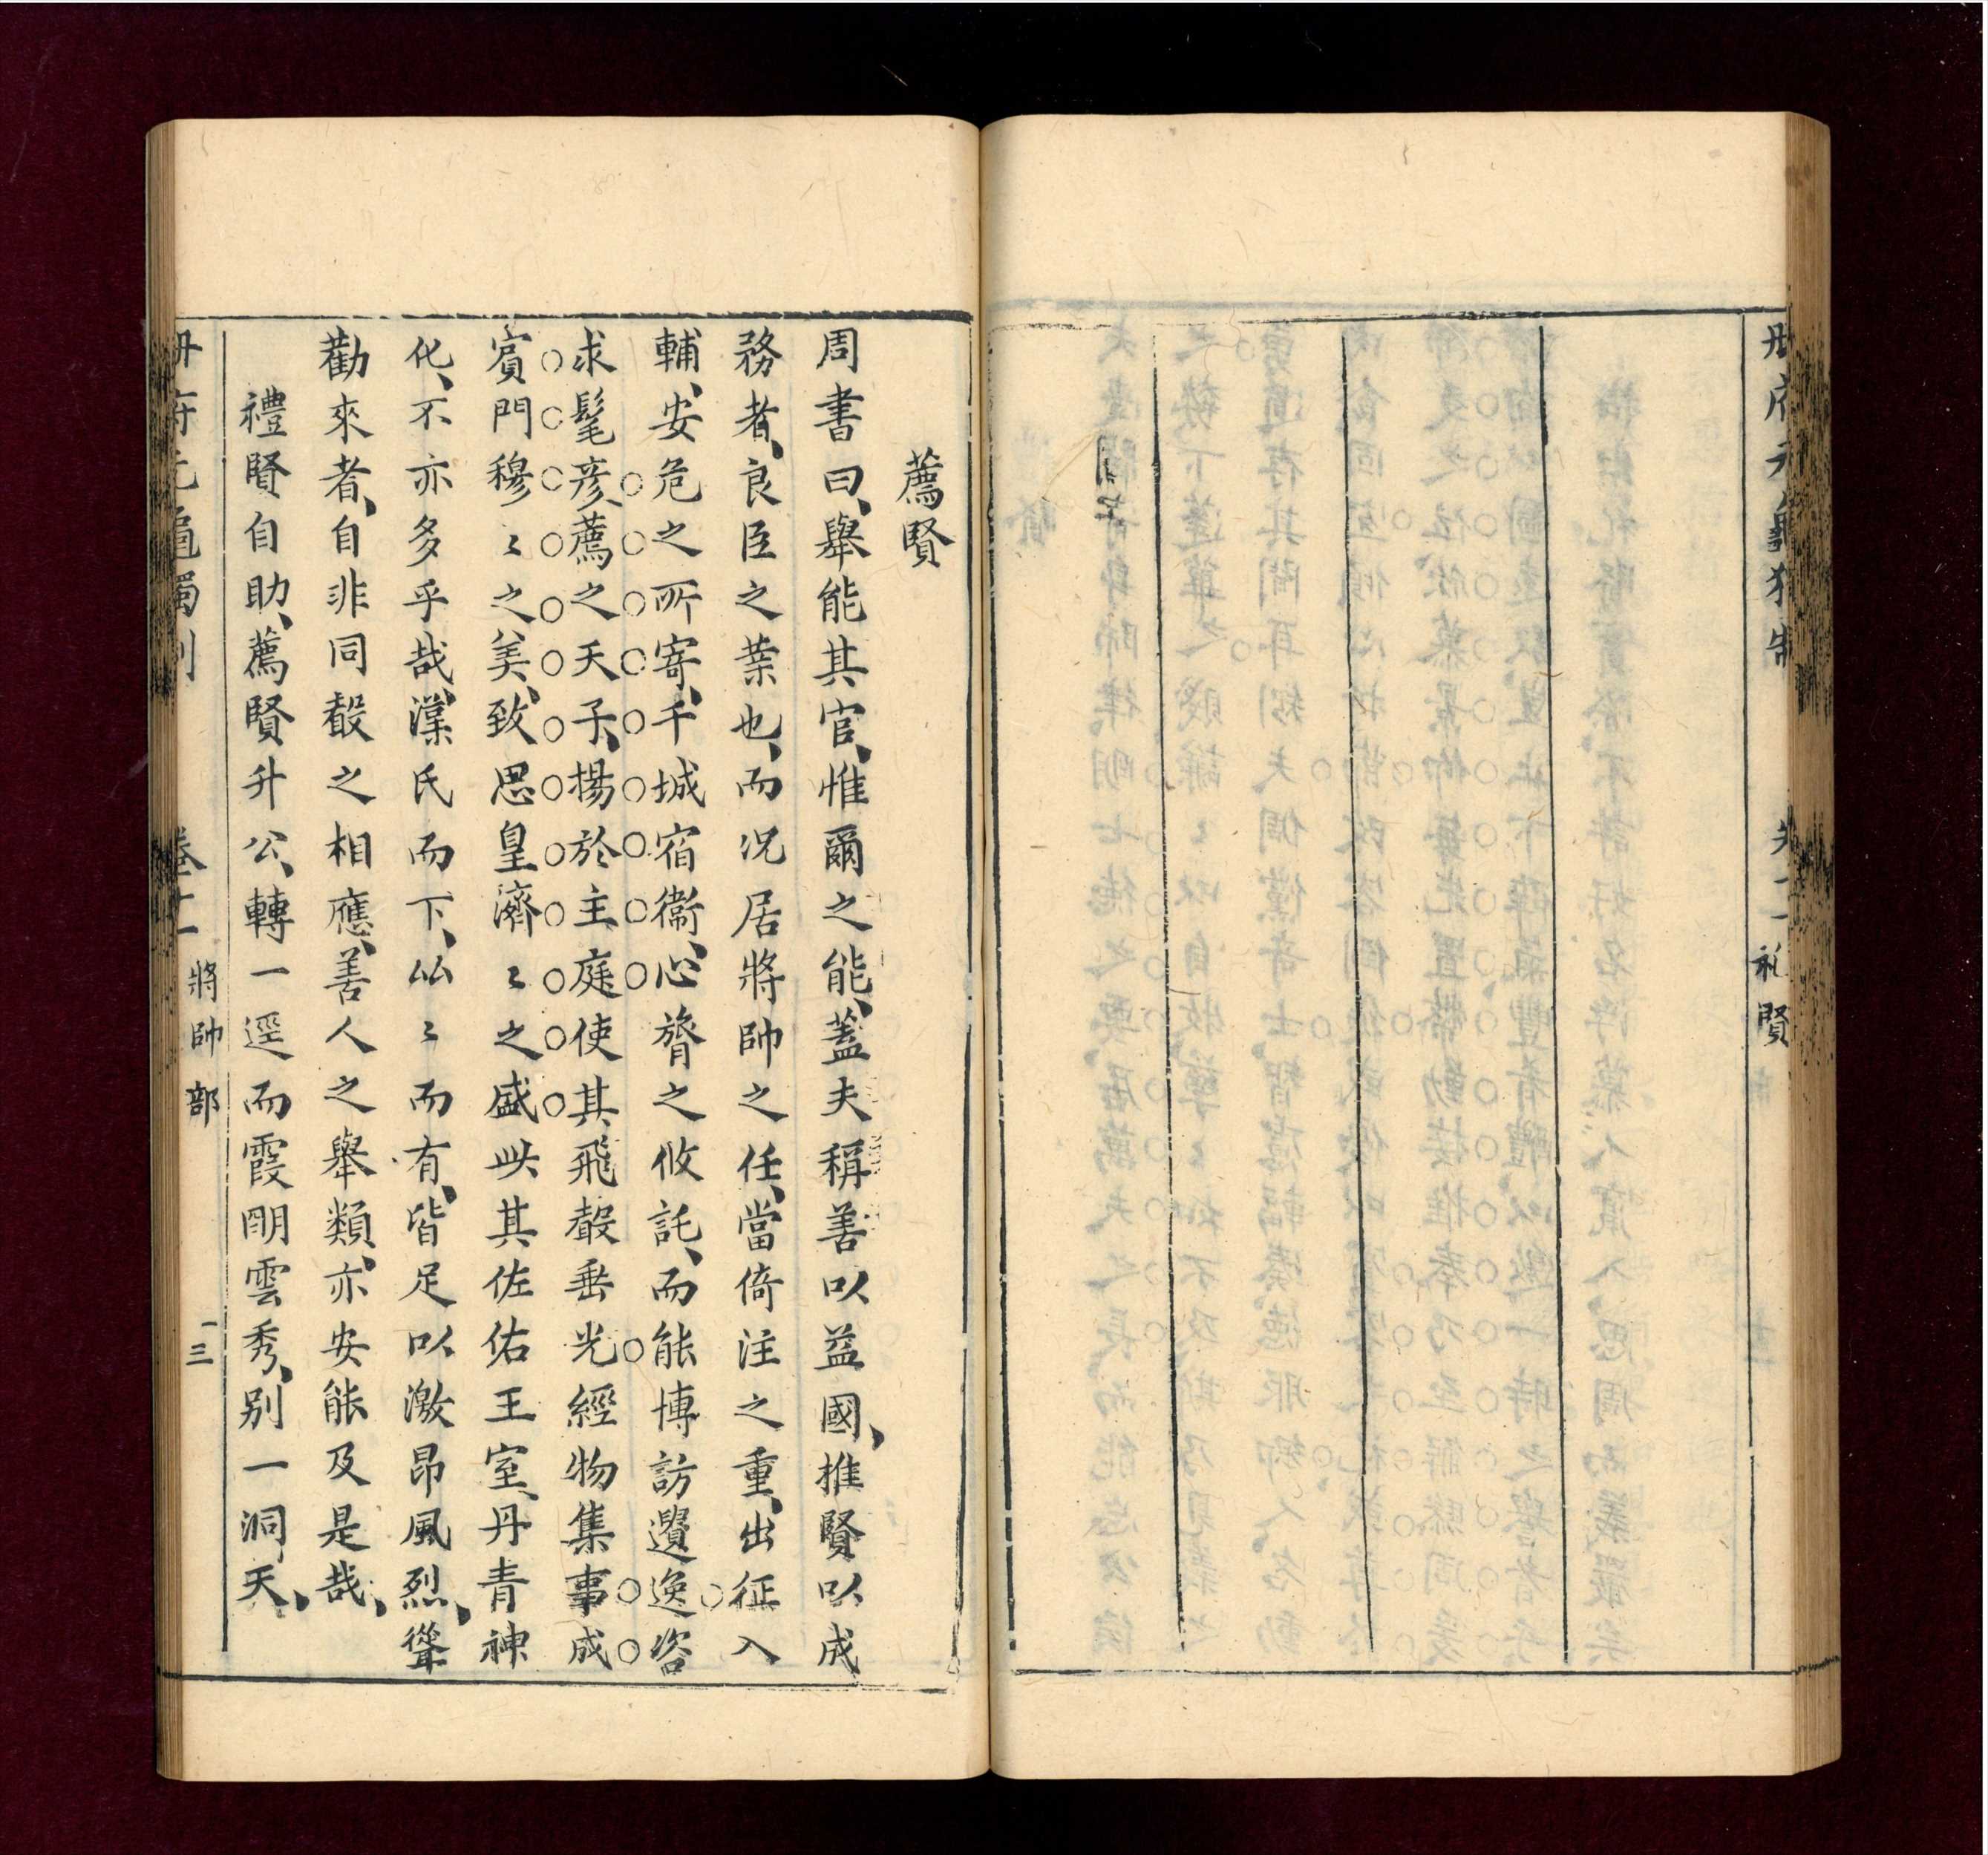 册府元龜獨制
卷十一 礼賢
薦賢
周書曰、舉能其官、惟爾之能、蓋夫稱善以益國、推賢以成
務者、良臣之業也、而况居將帥之任、當倚注之重、出征入
輔、安危之所寄、千城宿衞、心膂之攸託、而能博訪遺逸、咨
求髦彦、薦之天子、揚於主庭使其飛聲垂光經物集事成
賔門穆〻之美、致思皇濟〻之盛毗其佐佑王室、丹青神
化、不亦多乎哉、漢氏而下、比〻而有、皆足以激昂風烈、聳
勸來者、自非同聲之相應、善人之舉類、亦安能及是哉、
禮賢自助、薦賢升公、轉一逕而霞明雲秀、别一洞天、
册府元龜獨制
卷十一 將帥部
十三